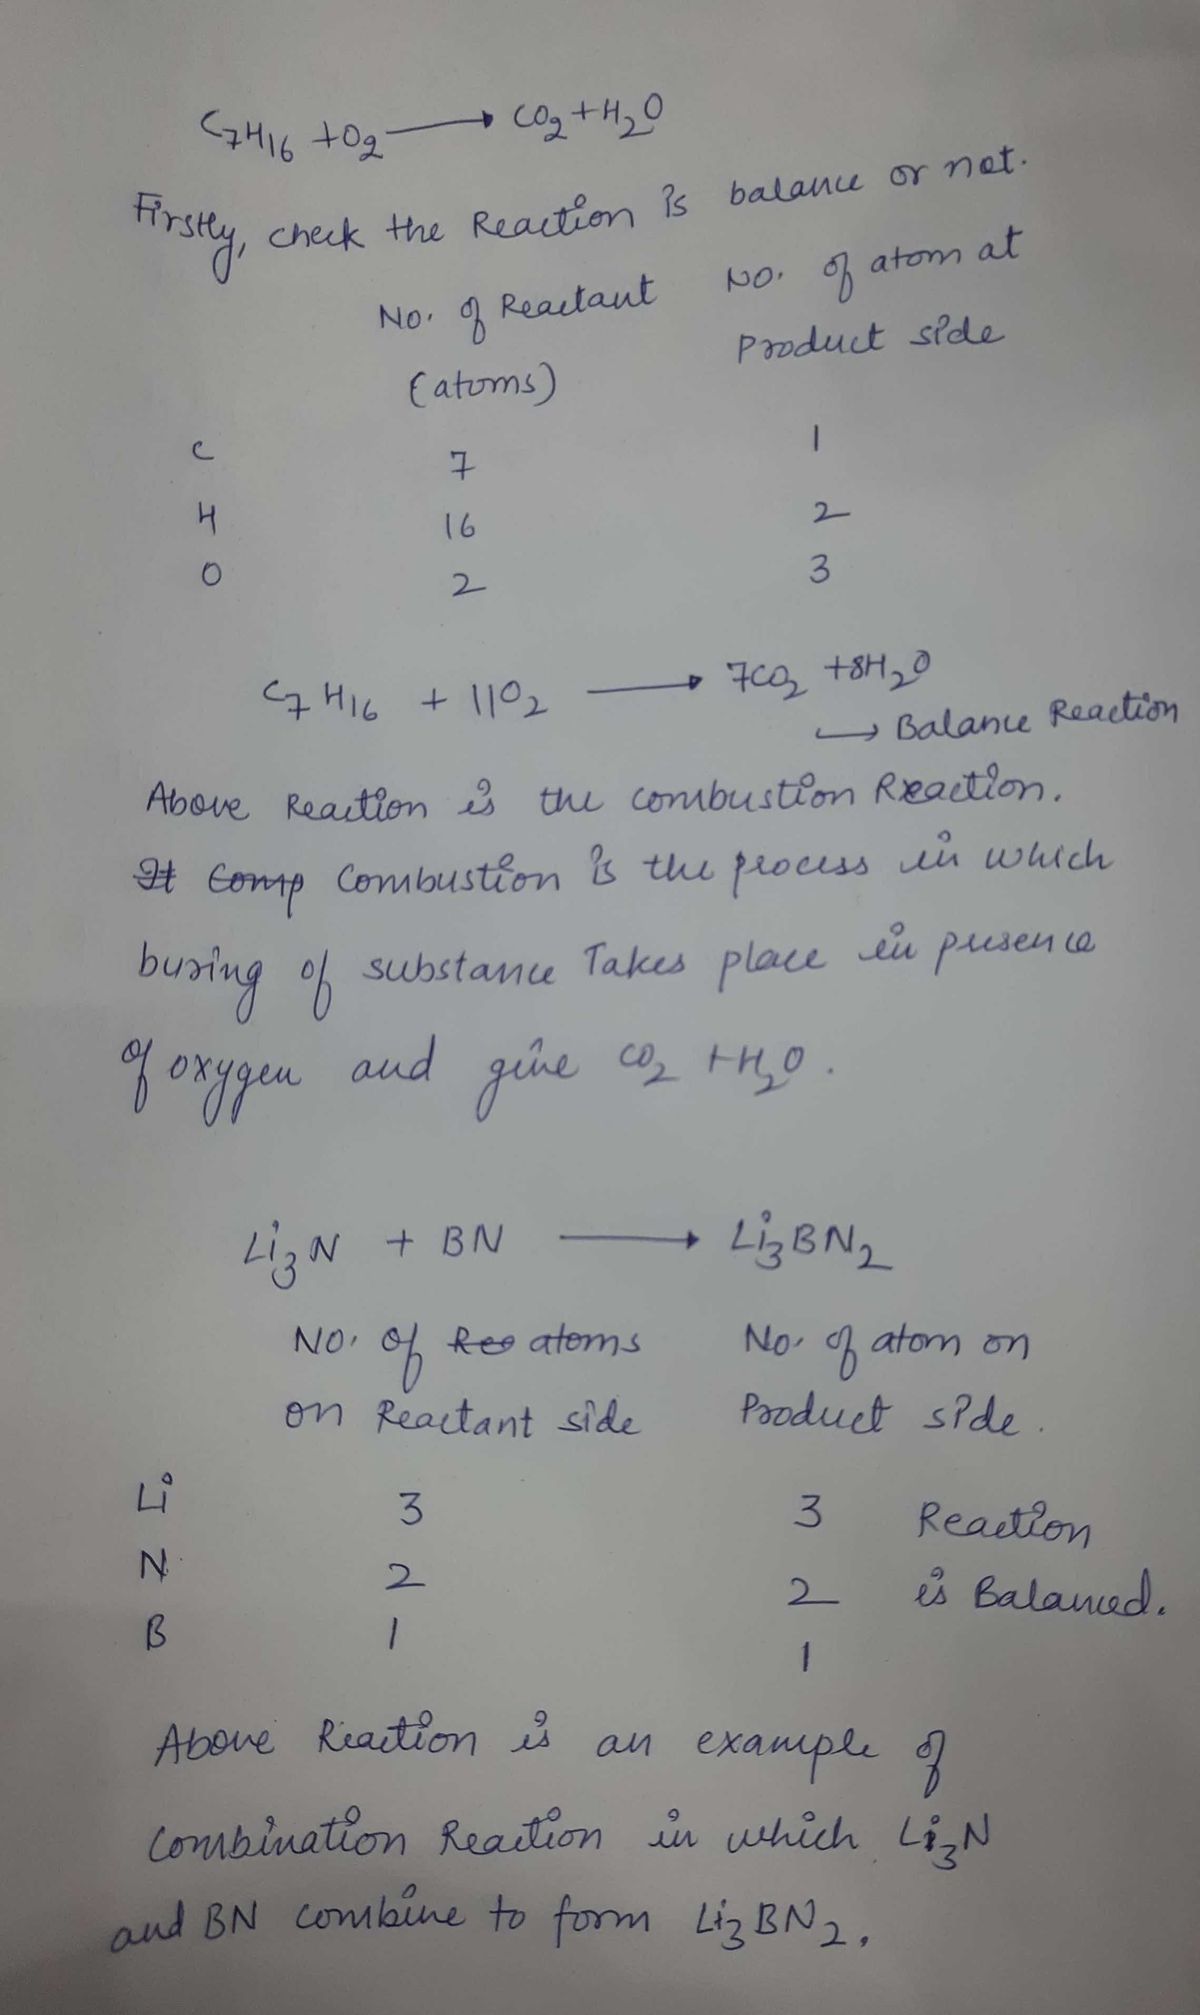 C₇H₁₆ + O₂ ⟶ CO₂ + H₂O
Firstly, check the Reaction is balance or not.
No. of Reactant No. of atom at
(atoms) Product side
C 7 1
H 16 2
O 2 3
C₇H₁₆ + 11O₂ ⟶ 7CO₂ + 8H₂O
↪ Balance Reaction
Above Reaction is the combustion Reaction.
~~It~~ ~~Comp~~ Combustion is the process in which
buring of substance Takes place in presence
of oxygen and give CO₂ + H₂O.
Li₃N + BN ⟶ Li₃BN₂
No. of ~~Rea~~ atoms No. of atom on
on Reactant side Product side.
Li 3 3 Reaction
N 2 2 is Balanced.
B 1 1
Above Reaction is an example of
Combination Reaction in which Li₃N
and BN combine to form Li₃BN₂.